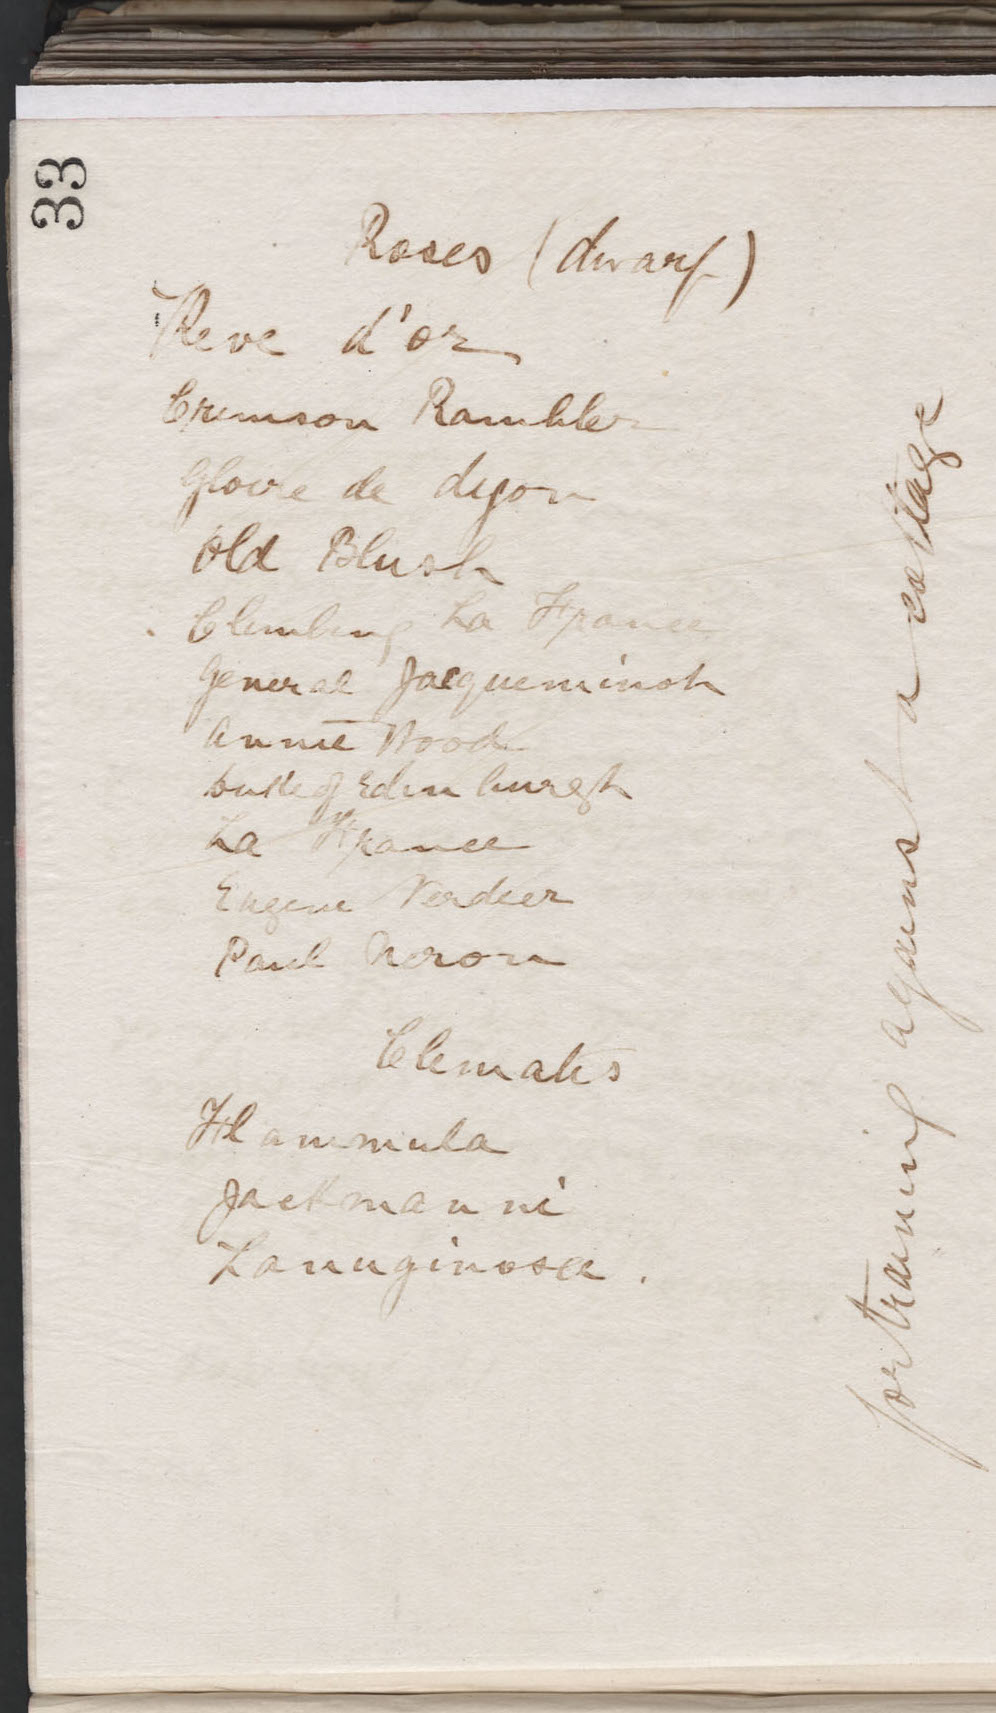 33
Roses (dwarf)
Reve d'or
Crimson Rambler
Gloire de dijon
Old Blush
Climbing La France
General Jacqueminot
Annie Wood
Duke of Edinburgh
La France
Eugene Verdier
Paul Neron
Clematis
Flammula
Jackmanni
Lanuginosa.
for training against a cottage